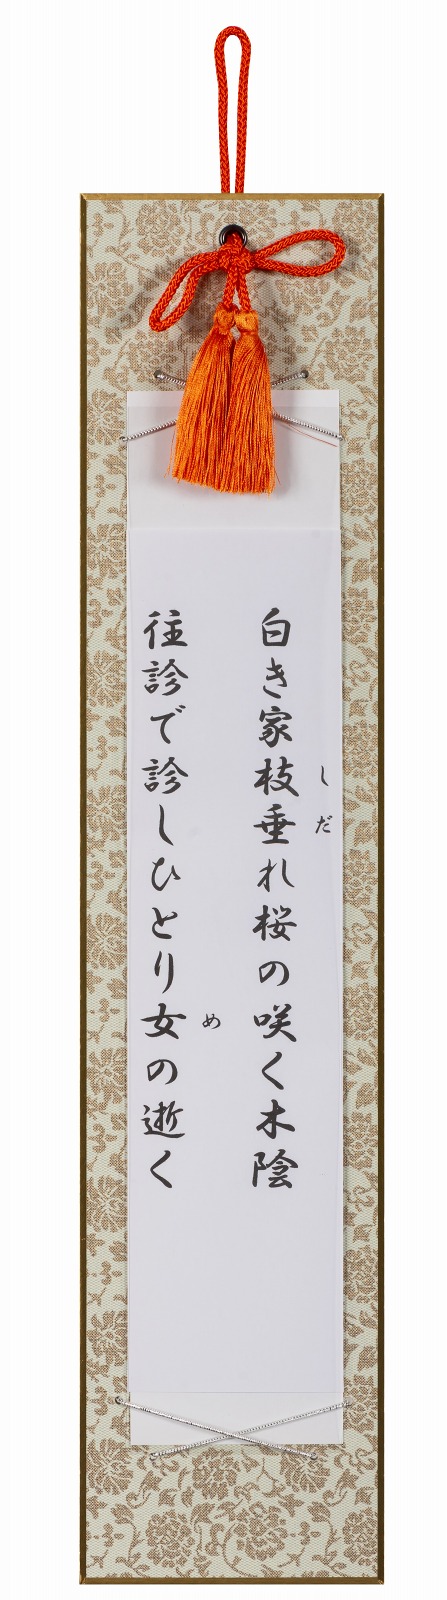 白き家枝垂れ桜の咲く木陰
しだ
往診で診しひとり女の逝く
め